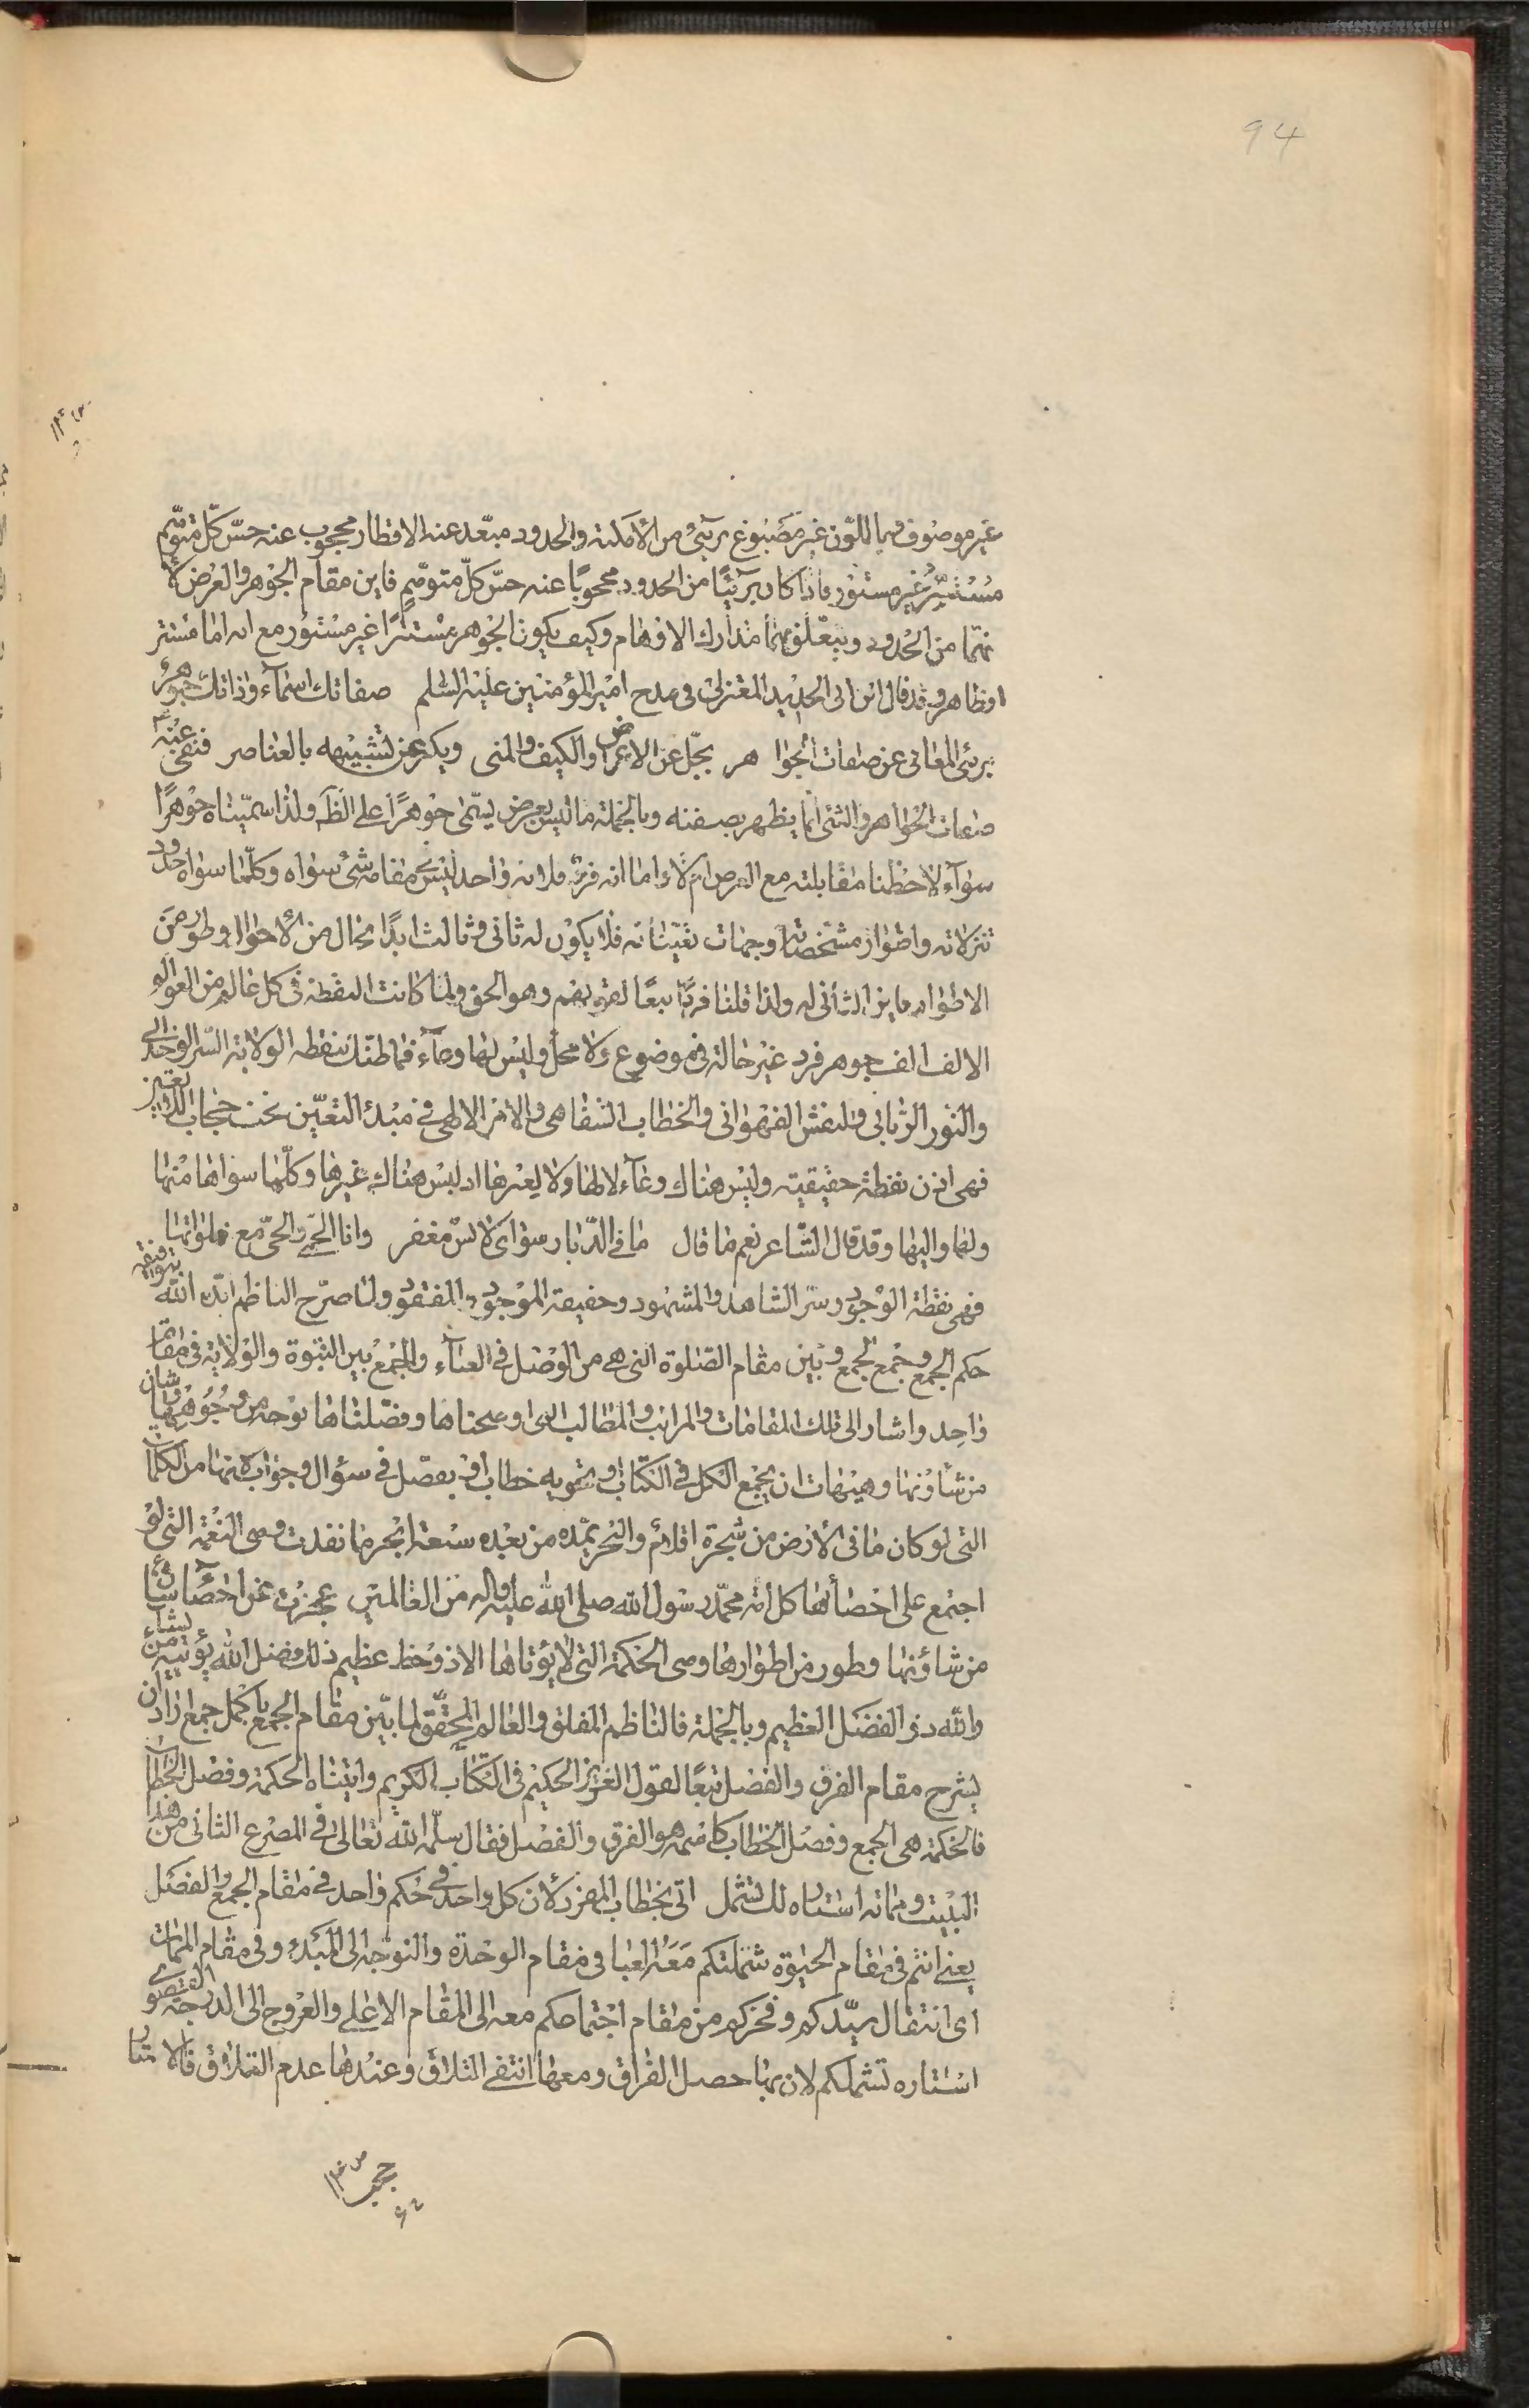 94
غير موصوف وباللّون غير مصبوغ برئ من الأمكنة والحدود مبعّد عنه الاقطار محجوب عنه حسّ كلّ متوهّم
مُسْتتِرٌ غير مستور فاذا كان بريئًا من الحدود محجوبًا عنه حسّ كلّ متوهّمٍ فاين مقام الجوهر والعرض لأ
نهما من الحُدود ويتعلّق بهما مدارك الافهام وكيف يكون الجوهر مستترًا غير مستور مع انه اما مستتر
او ظاهر وقد قال ابن ابى الحديد المعتزلى فى مدح امير المؤمنين عليه السّلم صفاتك اسمآء وذاتك جوهرٌ
برئ المعانى عن صفات الجوا هر يجلّ عن الاعراض والكيف والمتى ويكبر عن تشبيهه بالعناصر فنفى عنه
صفات الجواهر والشئ انما يظهر بصفته وبالجملة ما ليس بعرض يسمّى جوهرًا على الظّـ ولذا سميّناه جوهرًا
سوآء لاحظنا مقابلته مع العرض ام لا واما انه فردٌ فلانه واحد ليس فى مقامه شئ سواه وكلّما سواه حدود
تنزلاته واطوار مشخصاته وجهات تعيّناته فلا يكون له ثانى وثالث ابدًا بحال من الأحوال وطور من
الاطوار ولذا قلنا فردٌ تبعًا لقولهم وهو الحق ولما كانت النقطة فى كل عالم من العوالم
الالف الف جوهر فرد غير حالة فى موضوع ولا محلّ وليس لها وعآء فما ظنّك بنقطه الولاية السّر الوحدانى
والنور الرّبانى والنقش الفهوانى والخطاب الشفاهى والامر الالهى فى مبدء التعيّن تحت حجاب
فهى اذن نقطة حقيقيّة وليس هناك وعآء لا لها ولا لغيرها اذ ليس هناك غيرها وكلّما سواها منها
ولها واليها وقد قال الشّاعر نعم ما قال ما فى الدّيار سواى لابس مغفر وانا الحمى والحىّ مع فلواتها
فهى نقطة الوجود وسّر الشاهد والمشهود وحقيقة الموجود والمفقود ولمّا صرّح الناظم ايّده الله بتوفيقه
حكم الجمع وجمع الجمع وبيّن مقام الصّلوة التى هى من الوصل فى العبآء والجمع بين النبّوة والولاية فى مقام
واحد واشار الى تلك المقامات والمراتب والمطالب التى اوضحناها وفصّلناها بوجه من وجوهها وشان
من شأونها وهيهات ان يجمع الكل فى الكتاب او يحتويه خطاب او يفصّل فى سؤال وجواب لانها من الكلمات
التى لو كان ما فى الأرض من شجرة اقلام والبحر يمّده من بعده سبعة ابحر ما نفدت وهى النّعمة التى لو
اجتمع على احصائها كل امّة محمّد رسول الله صلى الله عليه واله من العالمين عجزت عن احصآء شأن
من شاؤنها وطور من اطوارها وهى الحكمة التى لا يؤتاها الا ذو حظ عظيم ذلك فضل الله يؤتيه من يشاء
والله ذو الفضل العظيم وبالجملة فالناظم المفلق والعالم المحقّق لما بيّن مقام الجمع باكمل جمع اراد ان
يشرح مقام الفرق والفصل تبعًا لقول العزيز الحكيم فى الكتاب الكريم واتيناه الحكمة وفصل الخطاب
فالحكمة هى الجمع وفصل الخطاب كاسمه هو الفرق والفصل فقال سلّمه الله تعالى فى المصرع الثانى من هذا
البيت ومماته استاره لك تشمل اتى بخطاب المفرد لأن كل واحد فى حكم واحد فى مقام الجمع والفصل
يعنى انتم فى مقام الحيوة شملتكم معه العبا فى مقام الوحدة والتوجّه الى المبدء وفى مقام الممات
اى انتقال سيّدكم وفخركم من مقام اجتماعكم معه الى المقام الاعلى والعروج الى الدرجة القصوى
استاره تشملكم لان بها حصل الفراق ومعها انتفى التلاق وعندها عدم التلاق فالاستار